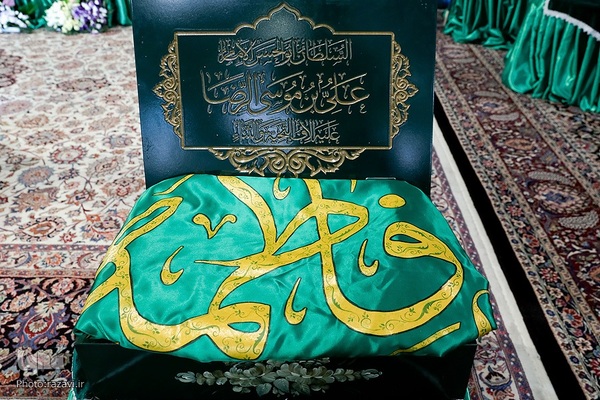 السلطان أبو الحسن الإمام
علي بن موسى الرضا
عليه آلاف التحية والثناء
فاطمة
Photo:razavi.ir